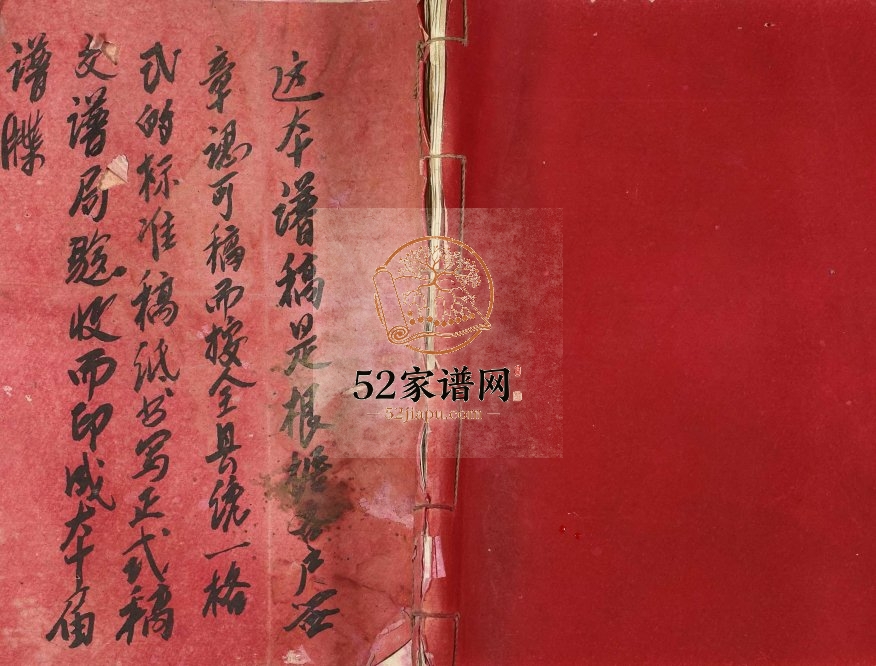 这本谱稿是根据各户签
章认可稿而按全县统一格
式的标准稿纸书写正式稿
交谱局验收而印成本十届
谱牒
52家谱网
52jiapu.com